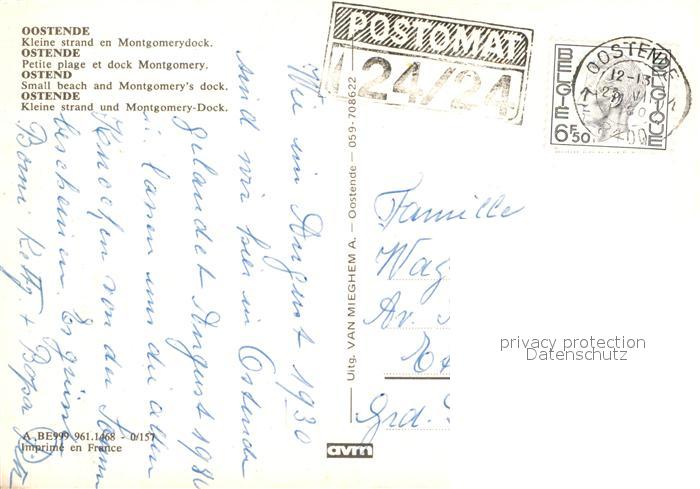 OOSTENDE
Kleine strand en Montgomerydock.
OSTENDE
Petite plage et dock Montgomery.
OSTEND
Small beach and Montgomery's dock.
OSTENDE
Kleine strand und Montgomery-Dock.
POSTOMAT
24/24
BELGIE BELGIQUE
6F50
OOSTENDE
12-13
8400
Wie im August 1930
sind wir hier in Ostende
gelandet August 1980
u. lassen uns die alten
Knochen von der Sonne
bescheinen. Es grüsst
Bomi Ketty + Bopa
Uitg. VAN MIEGHEM A. — Oostende — 059-708622
Famille
Wag
Av.
Grd.
privacy protection
Datenschutz
A BE999 961.1468 - 0/157
Imprimé en France
avm